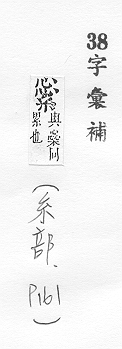 38字彙補
與同
累也
（糸部、P161）